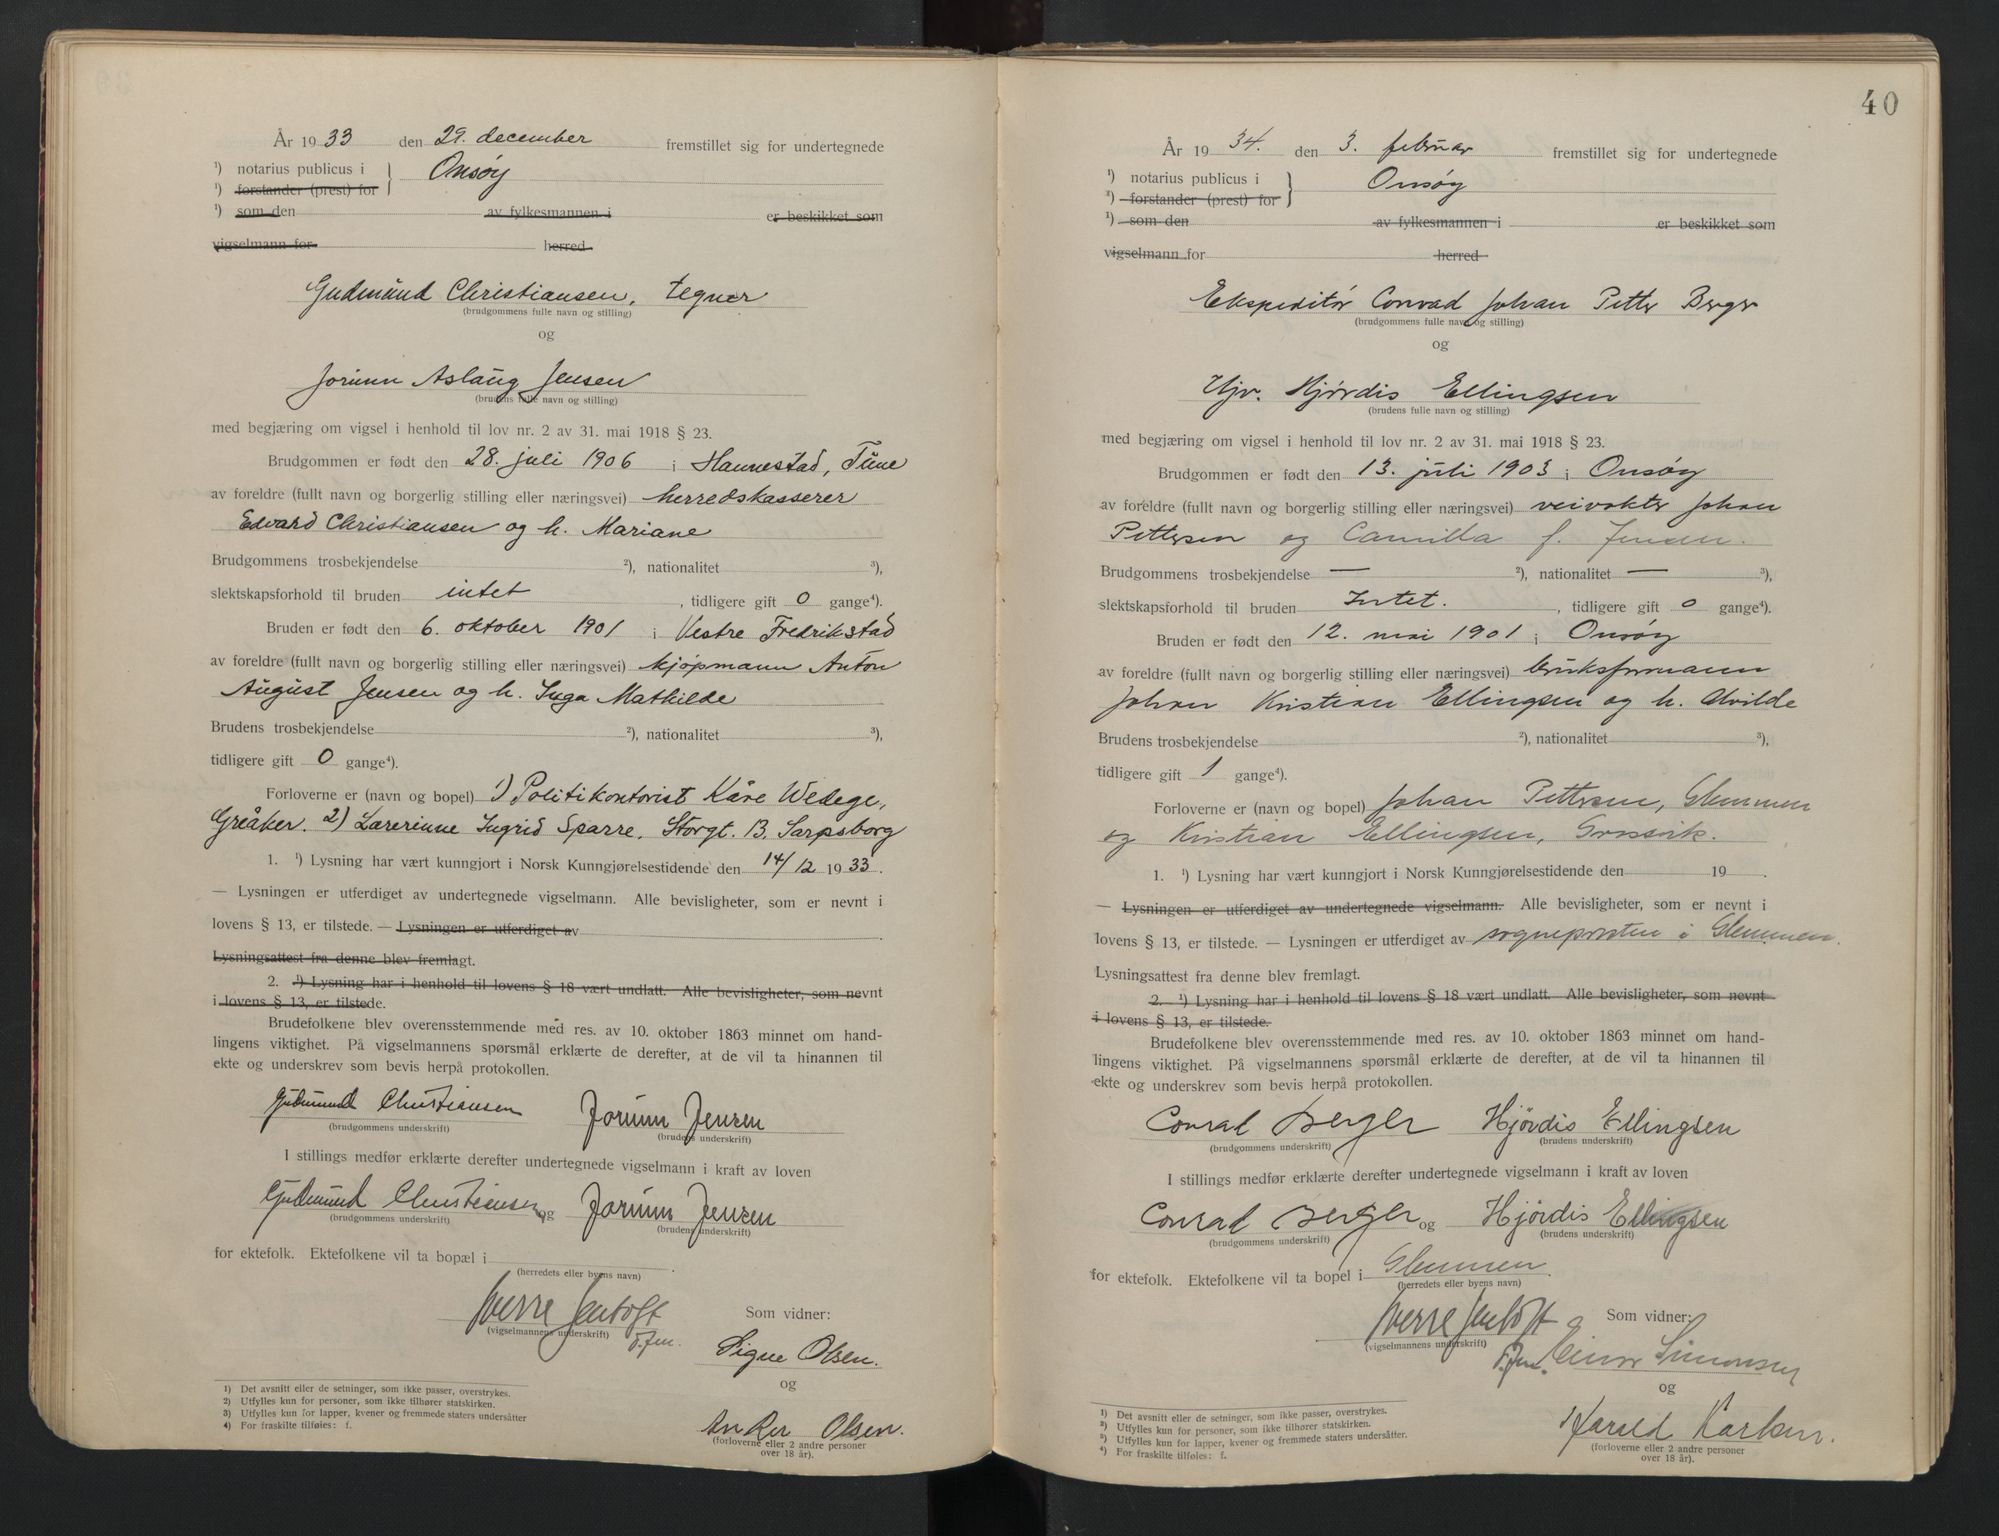 År 1933 den 29. december fremstillet sig for undertegnede
¹) notarius publicus i } Onsøy
¹) forstander (prest) for
¹) som den av fylkesmannen i er beskikket som
vigselmann for herred
Gudmund Christiansen, tegner
(brudgommens fulle navn og stilling)
og
Jorunn Aslaug Jensen
(brudens fulle navn og stilling)
med begjæring om vigsel i henhold til lov nr. 2 av 31. mai 1918 § 23.
Brudgommen er født den 28. juli 1906 i Hannestad, Tune
av foreldre (fullt navn og borgerlig stilling eller næringsvei) herredskasserer
Edvard Christiansen og h. Mariane
Brudgommens trosbekjendelse ²), nationalitet ³),
slektskapsforhold til bruden intet , tidligere gift 0 gange⁴).
Bruden er født den 6. oktober 1901 i Vestre Fredrikstad
av foreldre (fullt navn og borgerlig stilling eller næringsvei) kjøpmann Anton
August Jensen og h. Inga Mathilde
Brudens trosbekjendelse ²), nationalitet ³),
tidligere gift 0 gange⁴).
Forloverne er (navn og bopel) 1) Politikontorist Kåre Wedege,
Greåker. 2) Lærerinne Ingrid Sparre, Storgt. 13, Sarpsborg
1. ¹) Lysning har vært kunngjort i Norsk Kunngjørelsestidende den 14/12 1933.
— Lysningen er utferdiget av undertegnede vigselmann. Alle bevisligheter, som er nevnt i
lovens § 13, er tilstede. — Lysningen er utferdiget av
Lysningsattest fra denne blev fremlagt.
2. ¹) Lysning har i henhold til lovens § 18 vært undlatt. Alle bevisligheter, som nevnt
i lovens § 13, er tilstede.
Brudefolkene blev overensstemmende med res. av 10. oktober 1863 minnet om hand-
lingens viktighet. På vigselmannens spørsmål erklærte de derefter, at de vil ta hinannen til
ekte og underskrev som bevis herpå protokollen.
Gudmund Christiansen Jorunn Jensen
(brudgommens underskrift) (brudens underskrift)
I stillings medfør erklærte derefter undertegnede vigselmann i kraft av loven
Gudmund Christiansen og Jorunn Jensen
(brudgommens underskrift) (brudens underskrift)
for ektefolk. Ektefolkene vil ta bopæl i .
(herredets eller byens navn)
Sverre Jentoft Som vidner:
(vigselmannens underskrift)
Signe Olsen.
og
Anker Olsen.
(forloverne eller 2 andre personer
over 18 år).
1) Det avsnitt eller de setninger, som ikke passer, overstrykes.
2) Utfylles kun for personer, som ikke tilhører statskirken.
3) Utfylles kun for lapper, kvener og fremmede staters undersåtter
4) For fraskilte tilføies: f.
40
År 1934. den 3. februar fremstillet sig for undertegnede
¹) notarius publicus i } Onsøy
¹) forstander (prest) for
¹) som den av fylkesmannen i er beskikket som
vigselmann for herred
Ekspeditør Conrad Johan Petter Berger
(brudgommens fulle navn og stilling)
og
Hjv. Hjørdis Ellingsen
(brudens fulle navn og stilling)
med begjæring om vigsel i henhold til lov nr. 2 av 31. mai 1918 § 23.
Brudgommen er født den 13. juli 1903 i Onsøy
av foreldre (fullt navn og borgerlig stilling eller næringsvei) veivokter Johan
Pettersen og Camilla f. Jensen.
Brudgommens trosbekjendelse — ²), nationalitet — ³),
slektskapsforhold til bruden Intet. , tidligere gift 0 gange⁴).
Bruden er født den 12. mai 1901 i Onsøy
av foreldre (fullt navn og borgerlig stilling eller næringsvei) bruksformann
Johan Kristian Ellingsen og h. Alvilde
Brudens trosbekjendelse ²), nationalitet ³),
tidligere gift 1 gange⁴).
Forloverne er (navn og bopel) Johan Pettersen, Glemmen
og Kristian Ellingsen, Gressvik.
1. ¹) Lysning har vært kunngjort i Norsk Kunngjørelsestidende den 19 .
— Lysningen er utferdiget av undertegnede vigselmann. Alle bevisligheter, som er nevnt i
lovens § 13, er tilstede. — Lysningen er utferdiget av sognepresten i Glemmen.
Lysningsattest fra denne blev fremlagt.
2. ¹) Lysning har i henhold til lovens § 18 vært undlatt. Alle bevisligheter, som nevnt
i lovens § 13, er tilstede.
Brudefolkene blev overensstemmende med res. av 10. oktober 1863 minnet om hand-
lingens viktighet. På vigselmannens spørsmål erklærte de derefter, at de vil ta hinannen til
ekte og underskrev som bevis herpå protokollen.
Conrad Berger Hjørdis Ellingsen
(brudgommens underskrift) (brudens underskrift)
I stillings medfør erklærte derefter undertegnede vigselmann i kraft av loven
Conrad Berger og Hjørdis Ellingsen
(brudgommens underskrift) (brudens underskrift)
for ektefolk. Ektefolkene vil ta bopel i Glemmen.
(herredets eller byens navn)
Sverre Jentoft Som vidner:
(vigselmannens underskrift)
Einar Simonsen
og
Harald Karlsen.
(forloverne eller 2 andre personer
over 18 år).
¹) Det avsnitt eller de setninger, som ikke passer, overstrykes.
²) Utfylles kun for personer, som ikke tilhører statskirken.
³) Utfylles kun for lapper, kvener og fremmede staters undersåtter.
⁴) For fraskilte tilføies: f.